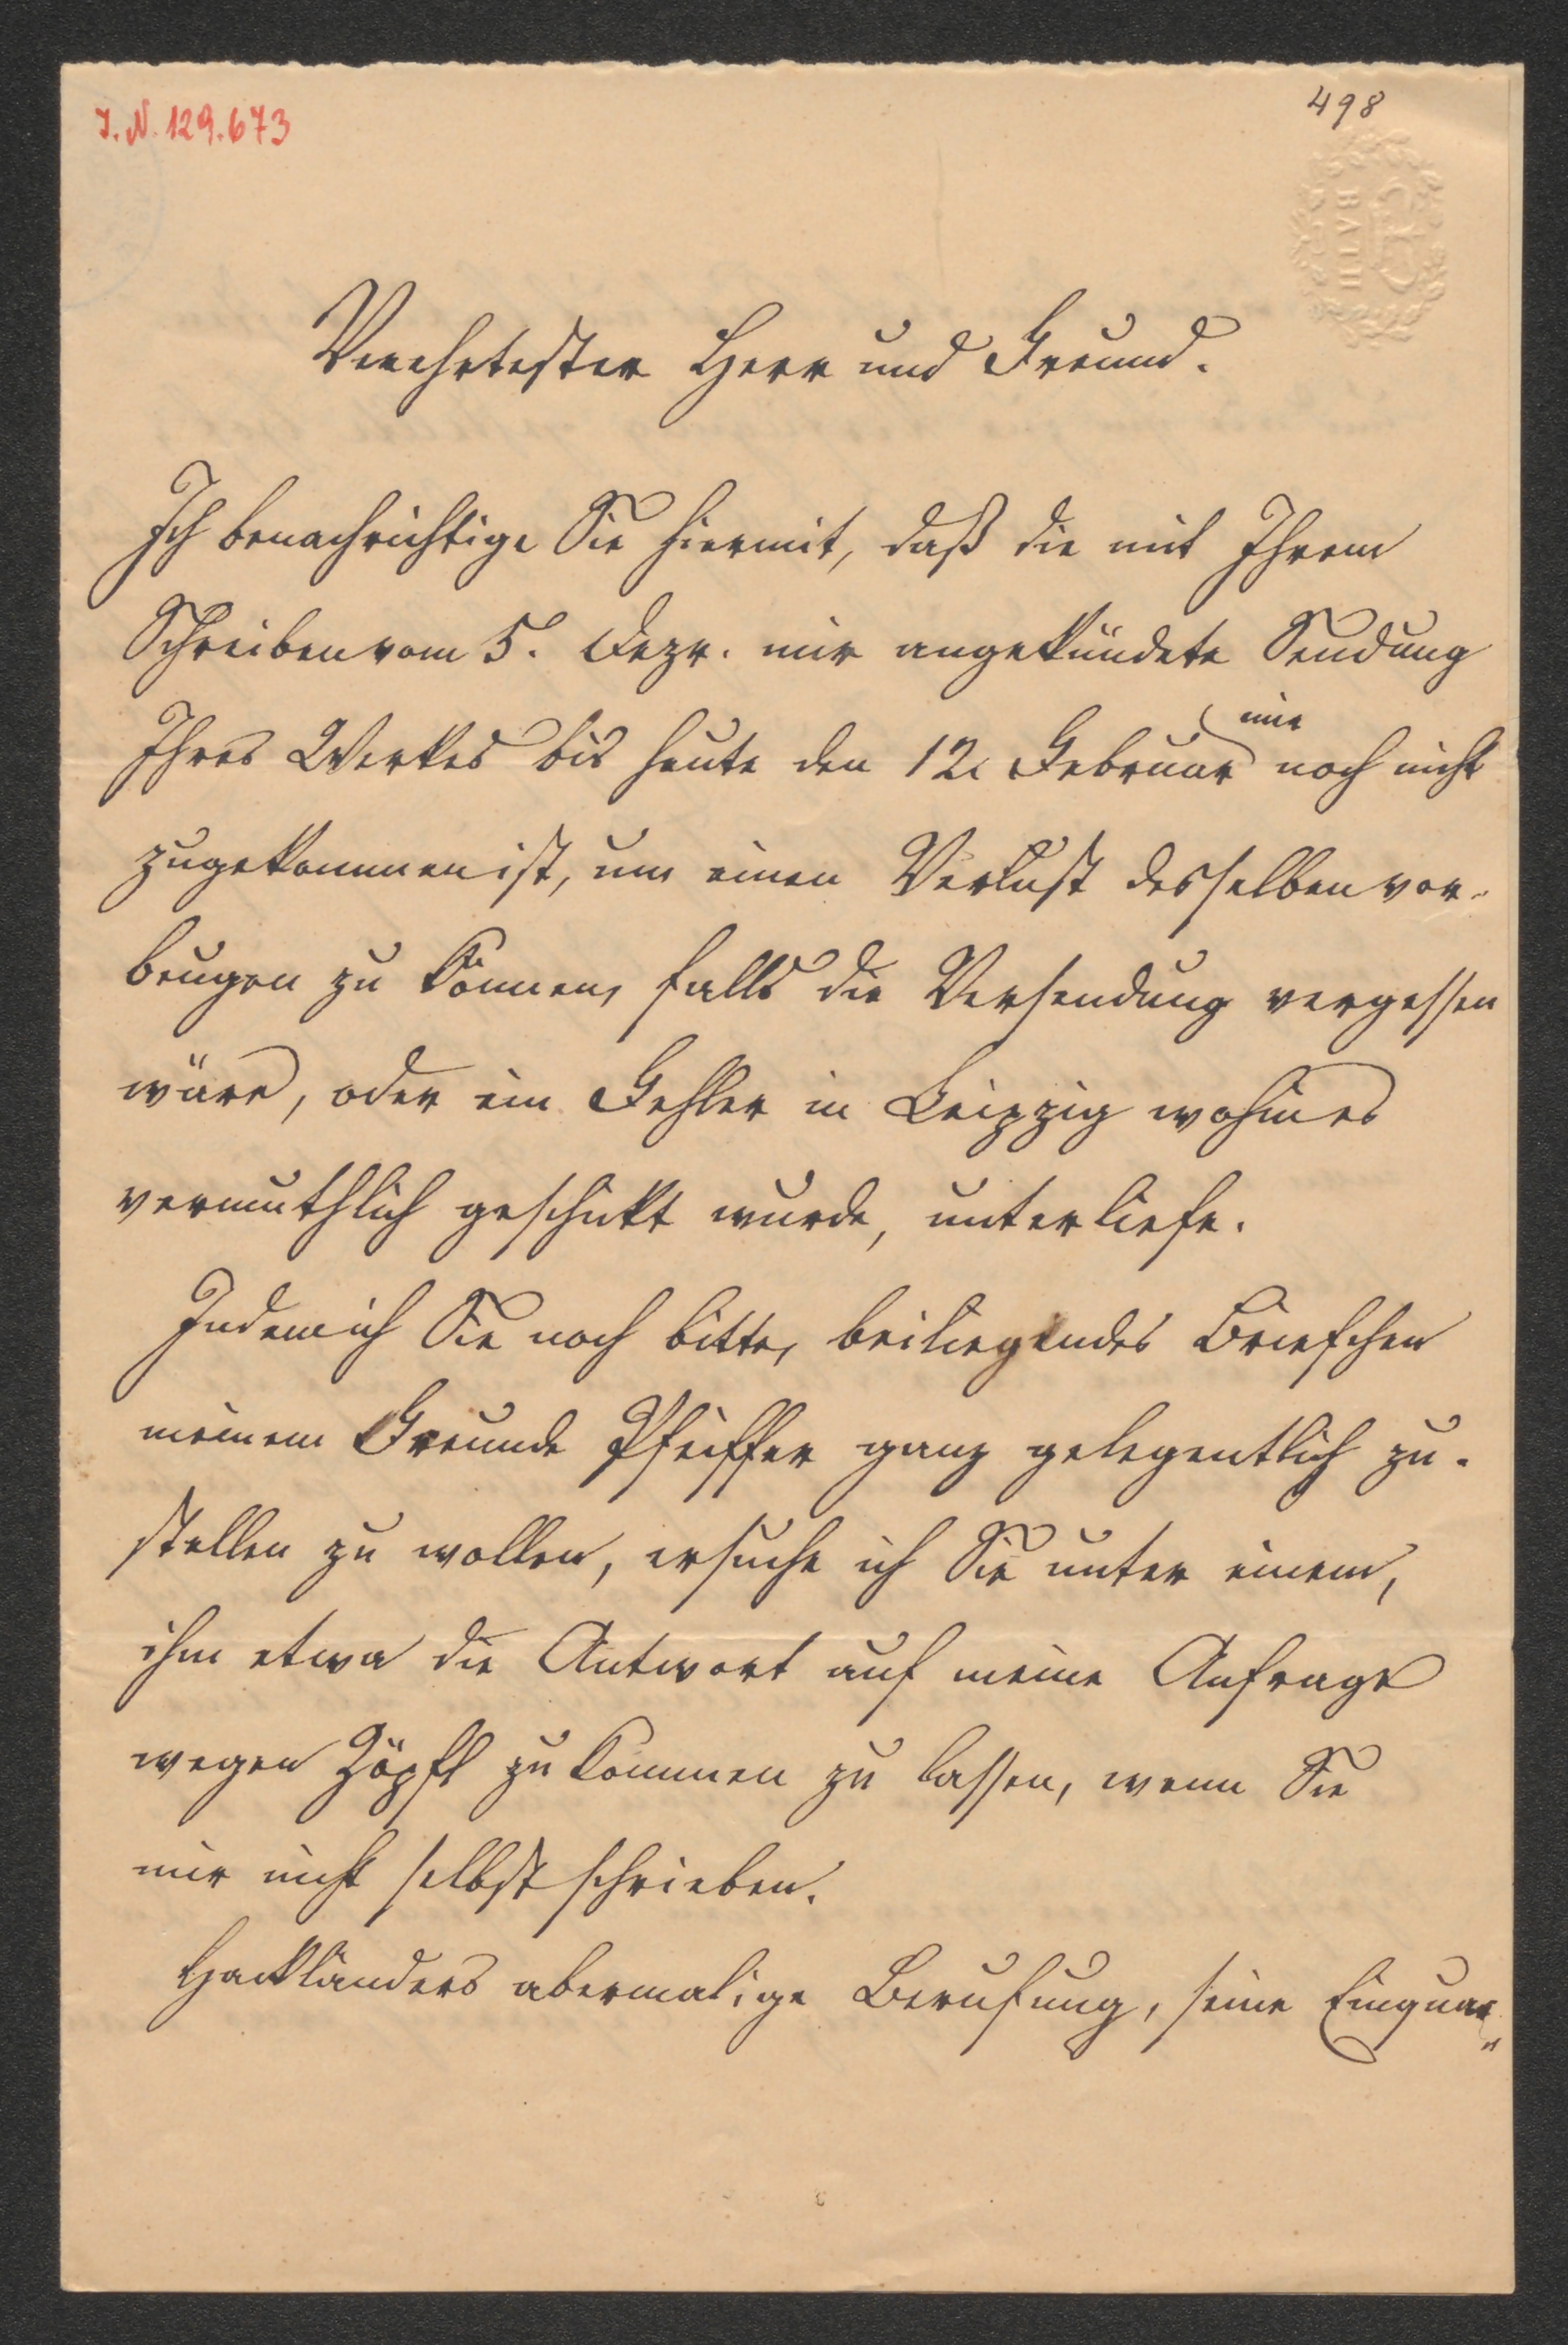 J. N. 129.673
498
BATH
Verehrtester Herr und Freund.
Ich benachrichtige Sie hiermit, daß die mit Ihrem
Schreiben vom 5. Dezr. mir angekündete Sendung
Ihres Werkes bis heute den 12. Februar mir noch nicht
zugekommen ist, um einen Verlust desselben vor-
beugen zu können, falls die Versendung vergessen
wäre, oder ein Fehler in Leipzig wohin es
vermuthlich geschickt wurde, unterliefe.
Indem ich Sie noch bitte, beiliegendes Briefchen
meinem Freunde Pfeiffer ganz gelegentlich zu-
stellen zu wollen, ersuche ich Sie unter einem,
ihm etwa die Antwort auf meine Anfrage
wegen Zöpfl zukommen zu lassen, wenn Sie
mir nicht selbst schrieben.
Hackländers abermalige Berufung, seine Einquar-